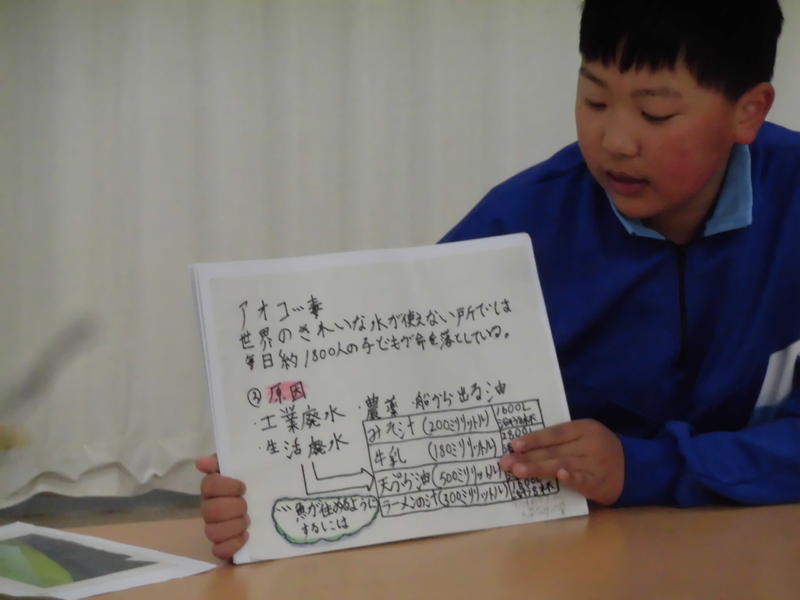 アオコ…毒
世界のきれいな水が使えない所では
毎日約1800人の子どもが命を落としている。
③原因
・工業廃水 ・農薬 ・船から出る油
・生活廃水
みそ汁(200ミリリットル) 1600L
牛乳(180ミリリットル) 2800L
天ぷら油(500ミリリットル)
ラーメンの汁(300ミリリットル)
…魚が住めるように
するには